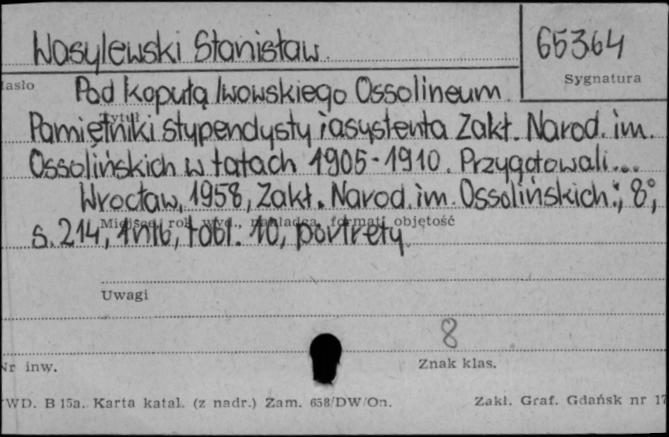 Wasylewski Stanisław.
65364
Sygnatura
Hasło
Pod kopułą lwowskiego Ossolineum.
Tytuł
Pamiętniki stypendysty i asystenta Zakł. Narod. im.
Ossolińskich w latach 1905-1910. Przygotowali...
Wrocław, 1958, Zakł. Narod. im. Ossolińskich; 8°,
Miejsce, rok wyd., nakładca, format, objętość
s. 214, 1 nlb, tabl. 10, portrety.
Uwagi
8
Nr inw.
Znak klas.
WD. B 15a. Karta katal. (z nadr.) Zam. 658/DW/On.
Zakł. Graf. Gdańsk nr 17